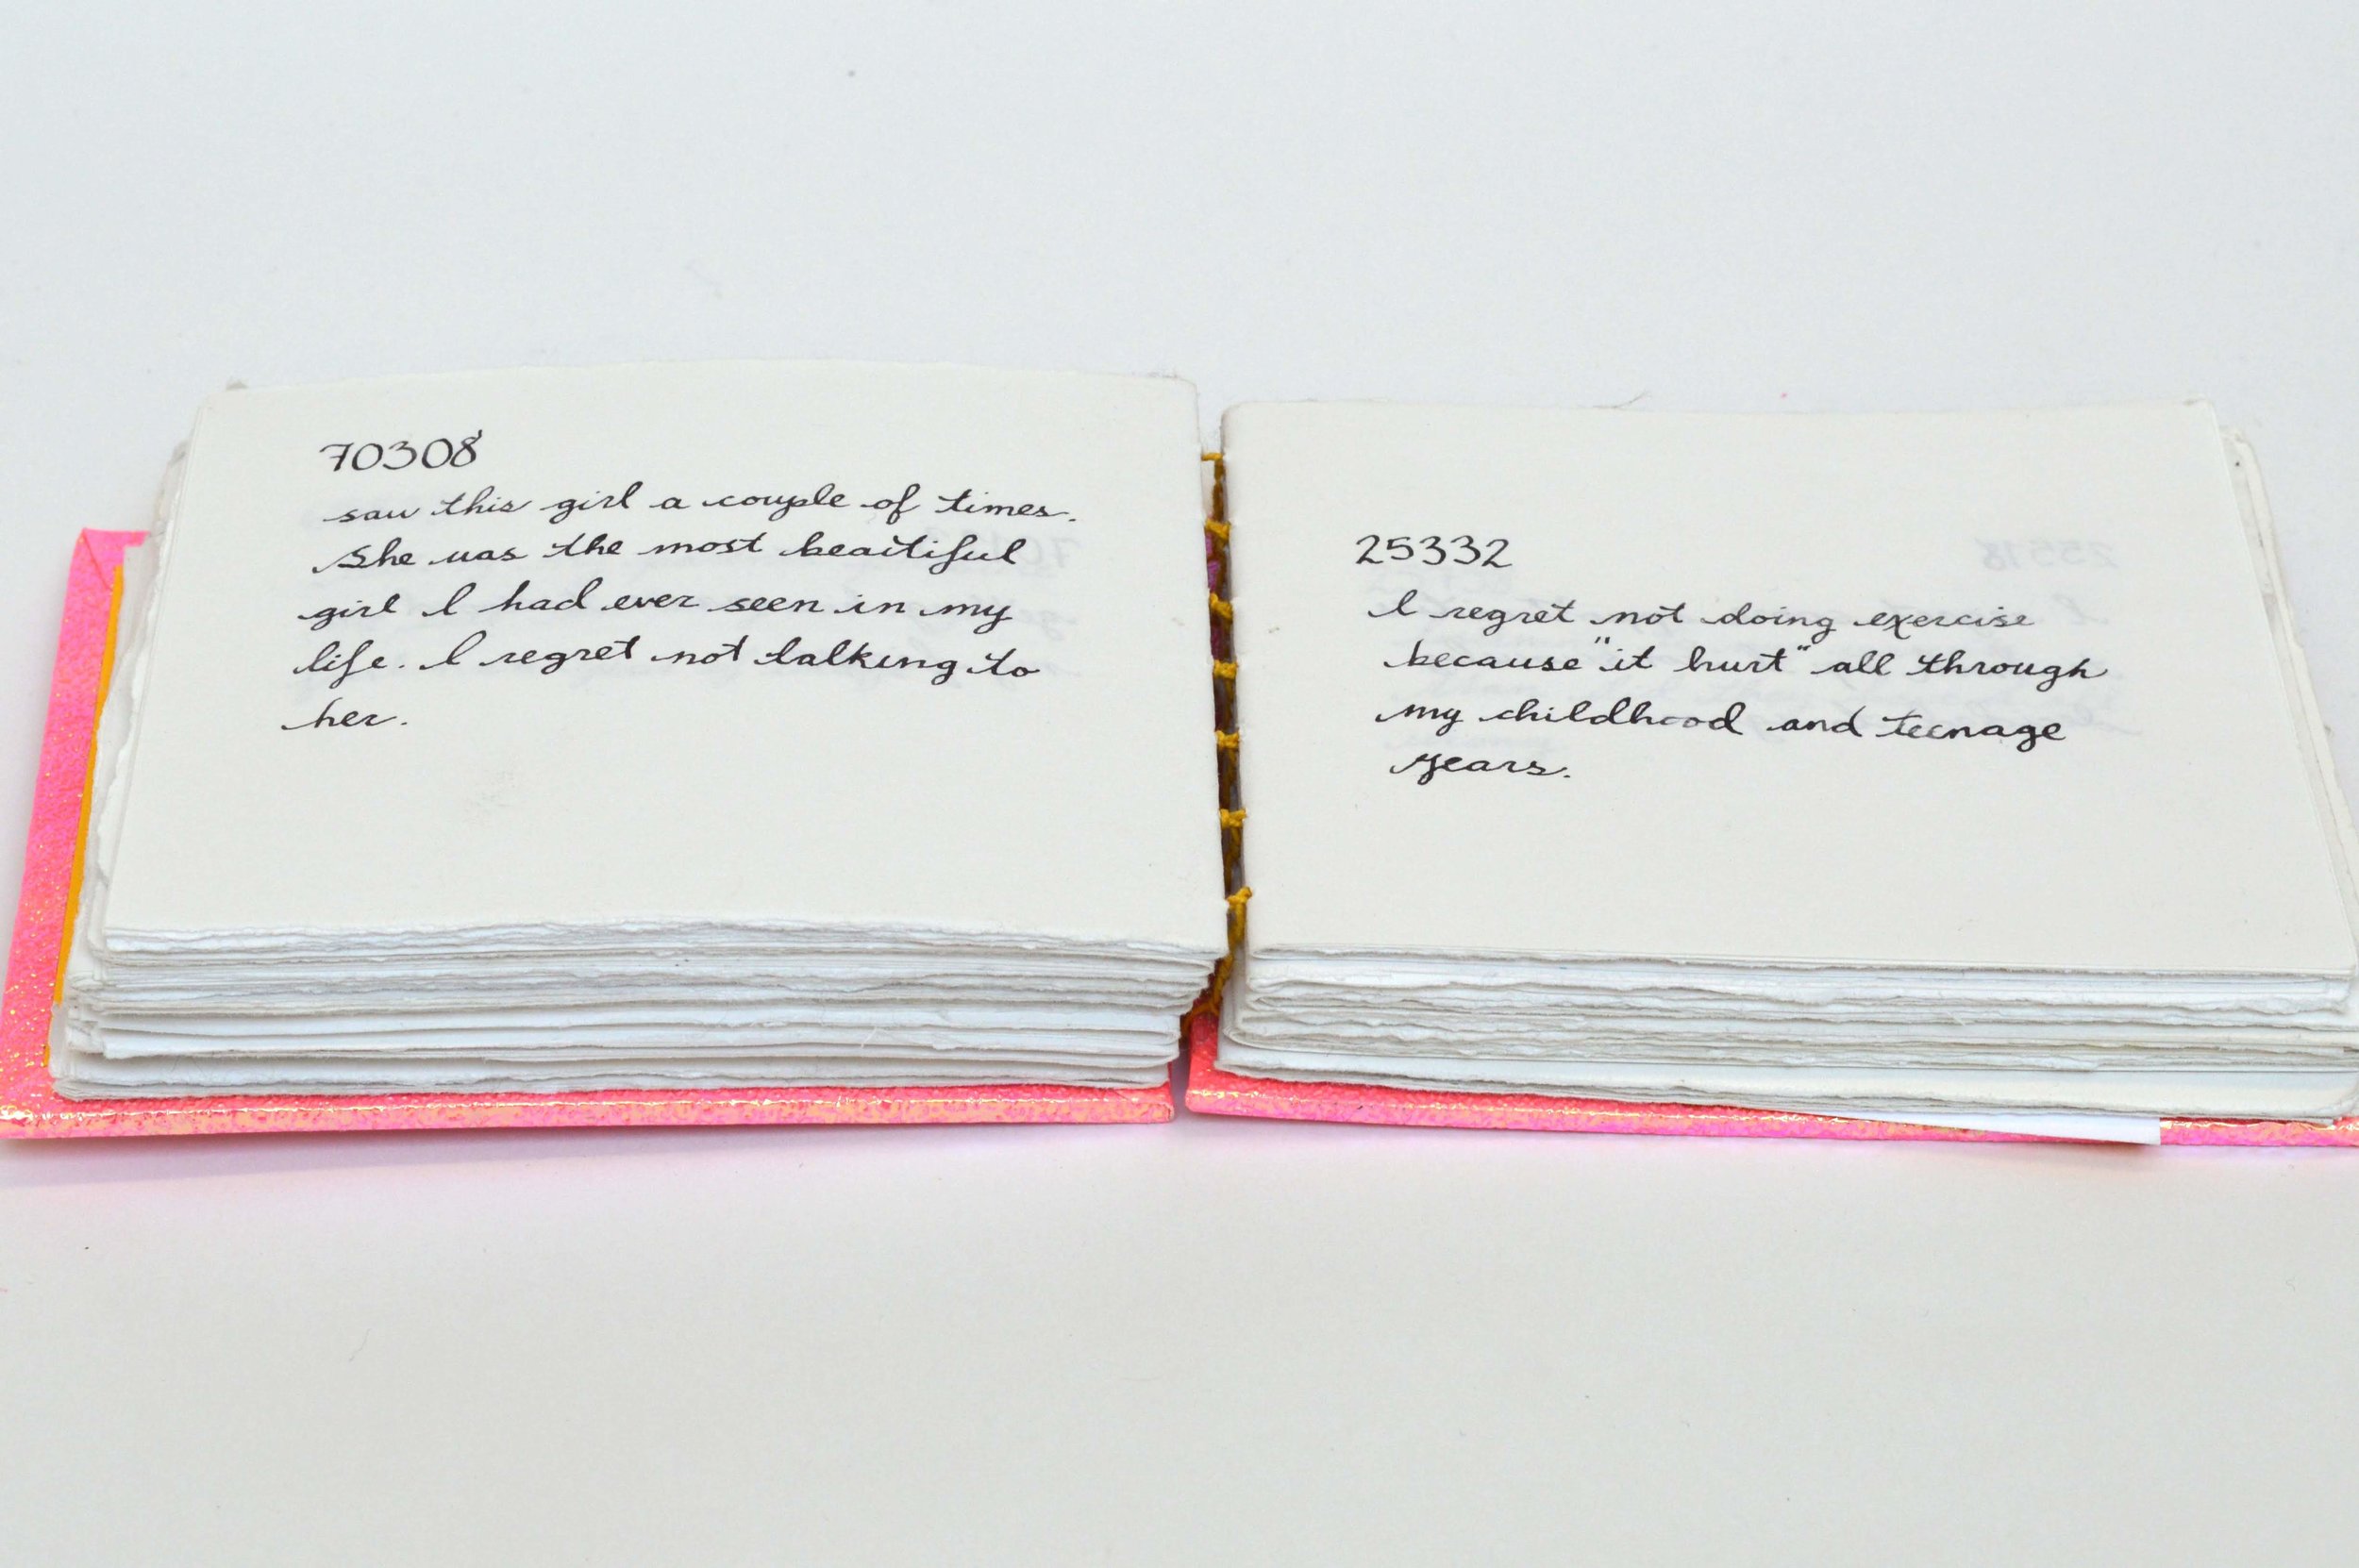 70308
saw this girl a couple of times.
She was the most beautiful
girl I had ever seen in my
life. I regret not talking to
her.
25332
I regret not doing exercise
because "it hurt" all through
my childhood and teenage
years.